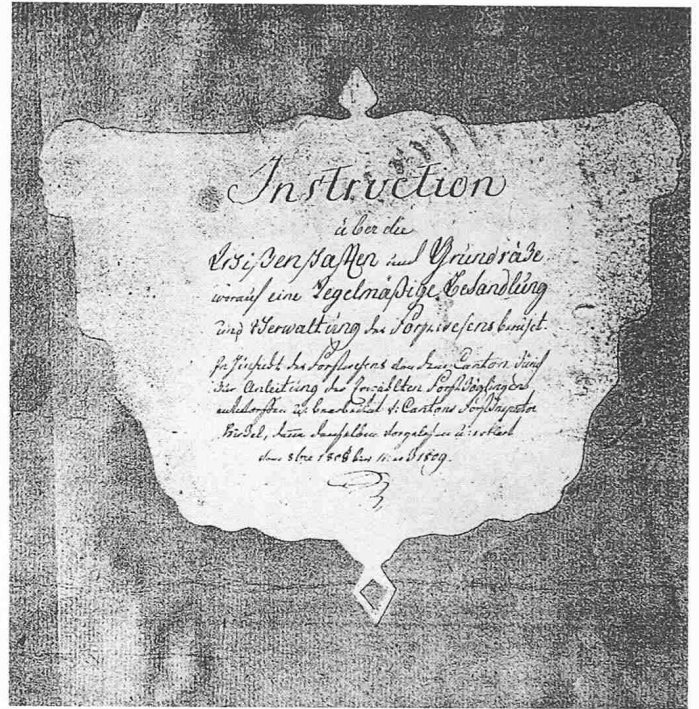 Instruction
über die
Wißenschaften und Grundsäze
worauf eine Regelmäßige Behandlung
und Verwaltung des Forstwesens beruhet.
In Hinsicht des Forstwesens des Cantons Zürich
zur Anleitung der Forstzöglingen
entworffen u: bearbeitet v: Cantons Forstinspector
denselben vorgelesen u: erklärt
vom 8bre 1808 bis Merz 1809.